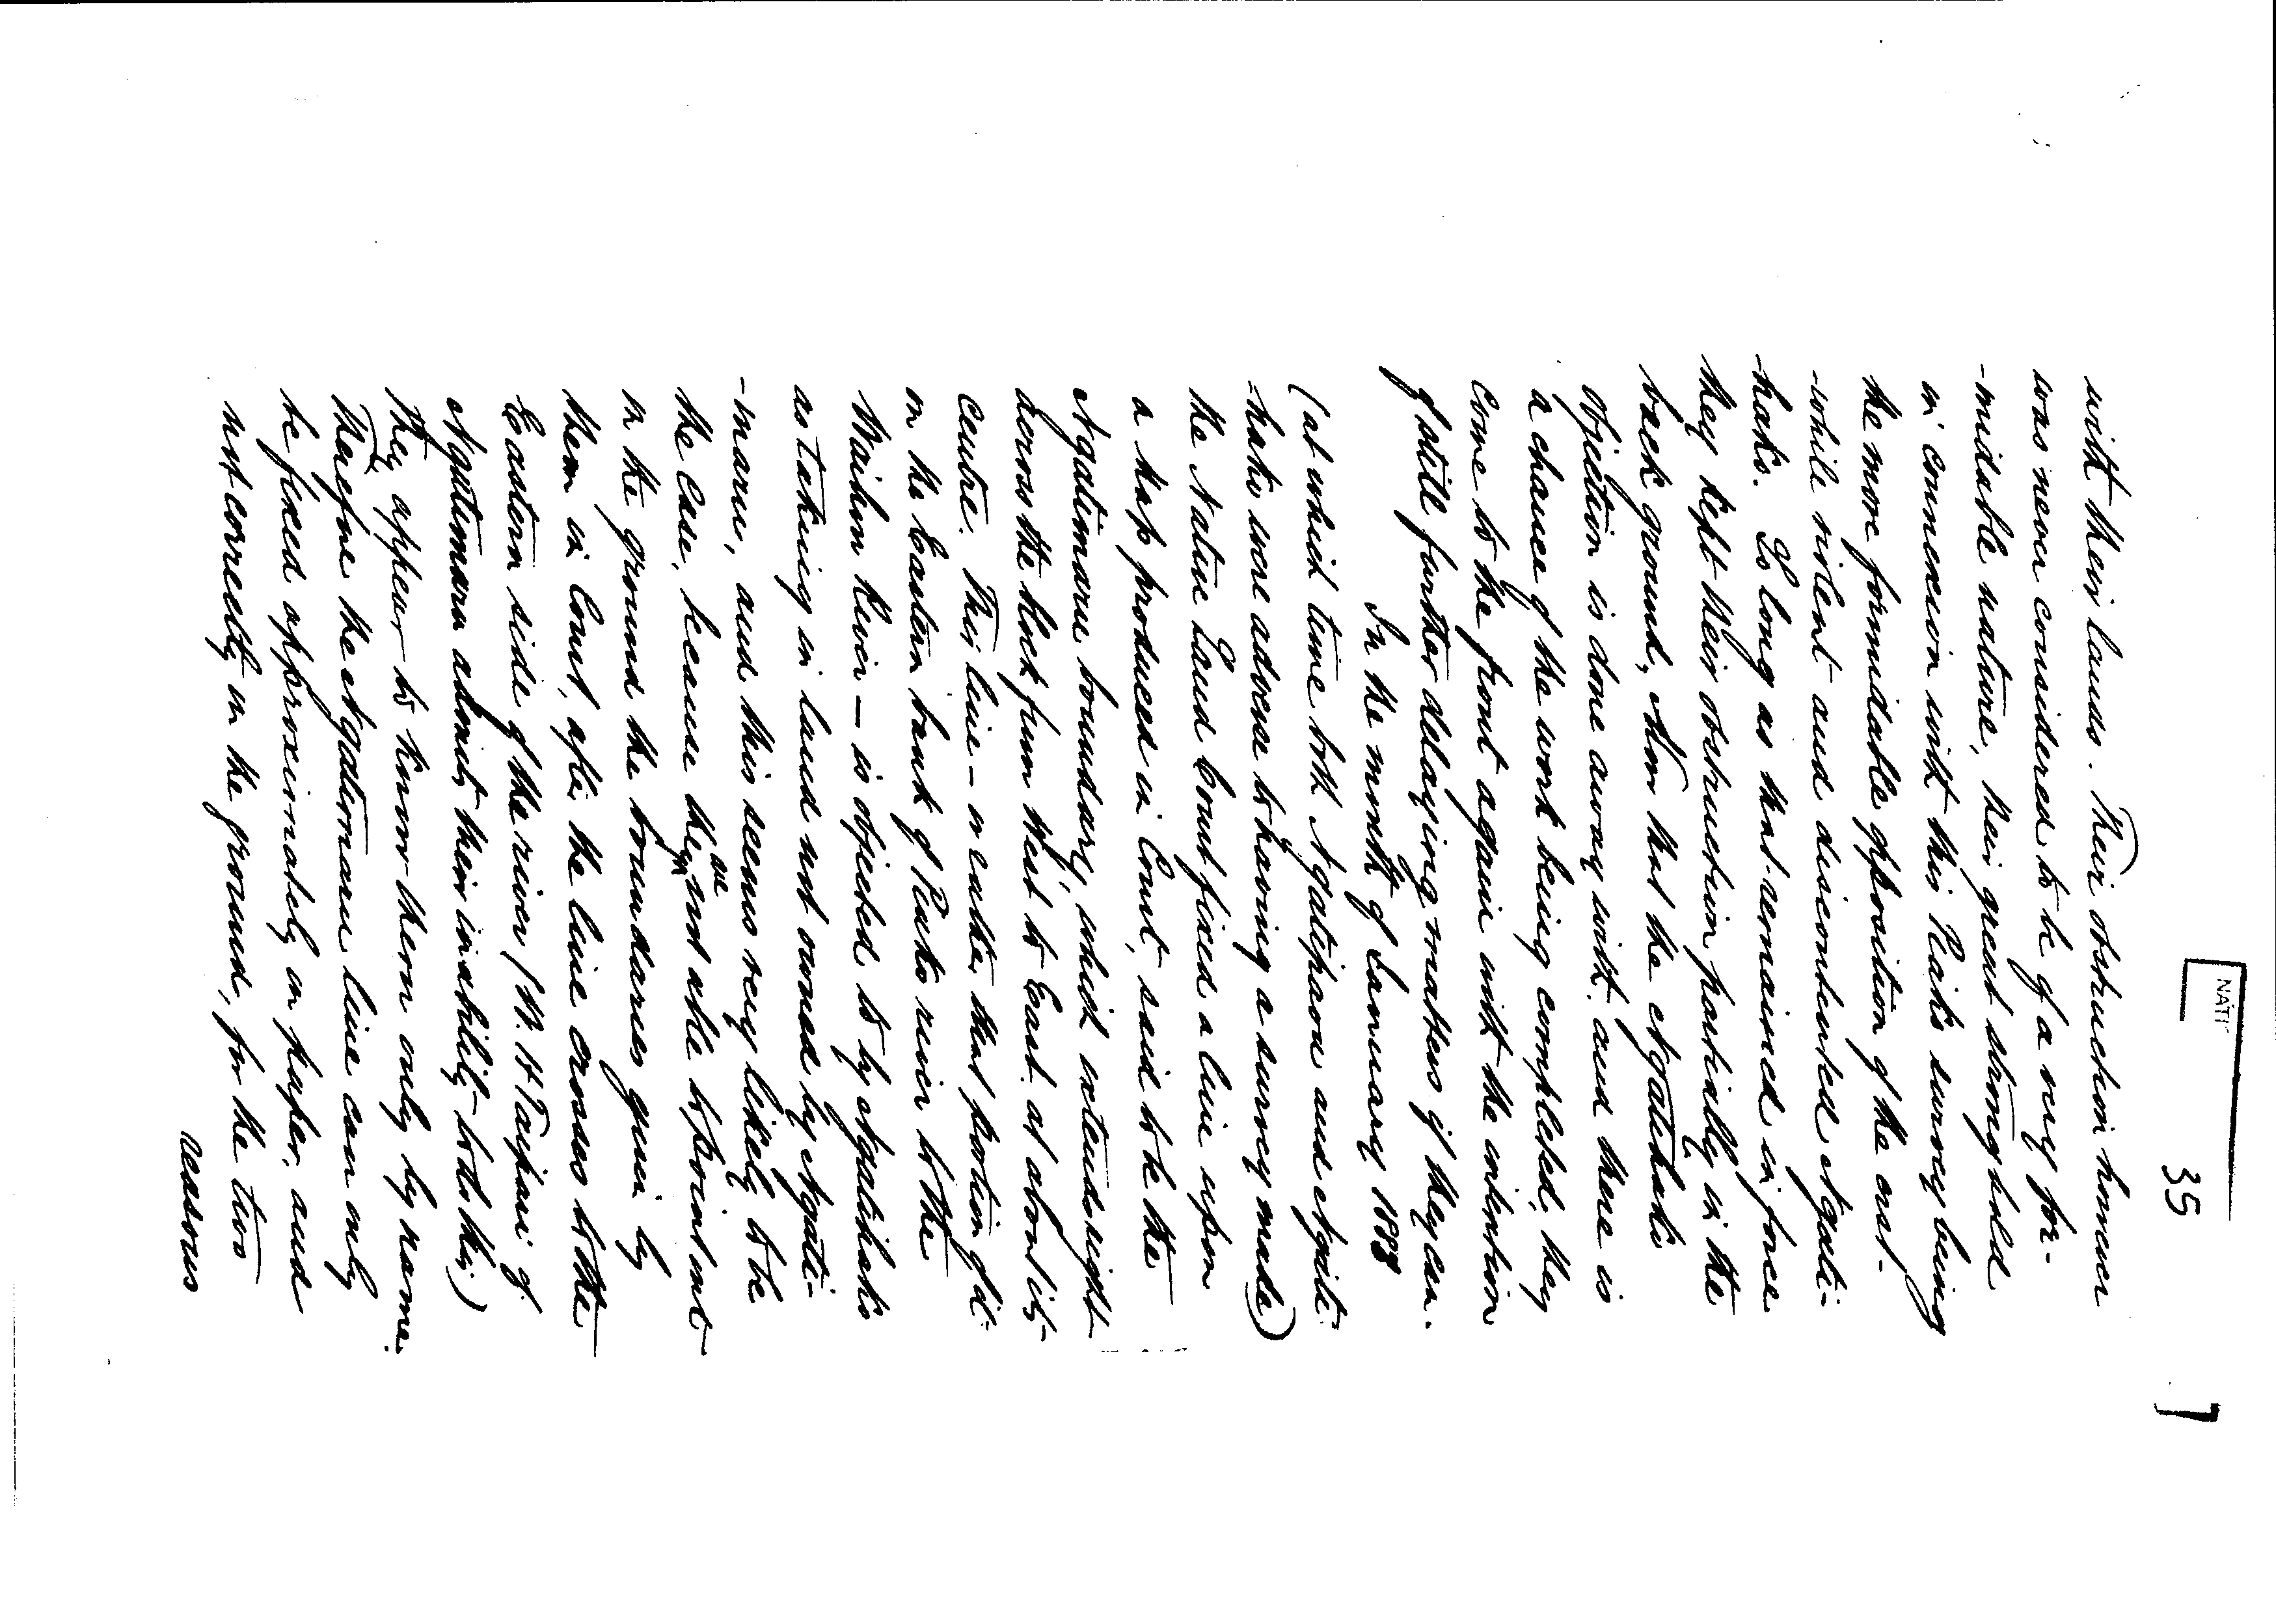 NATI
35
with their lands. Their obstruction however
was never considered to be of a very for-
-midable nature, their great stronghold
in connexion with this Raik's survey being
the more formidable opposition of the erst-
-while violent and discontented Ngati-
-haka. So long as that remained in force
they kept their obstruction partially in the
back ground, Now that the Ngatihaka
objection is done away with, and there is
a chance of the work being completed, they
come to the front again with the intention
of still further delaying matters if they can.
In the month of January 1888
(at which time both Ngatipaoa and Ngati-
-haka were adverse to having a survey made)
the Native Land Court fixed a line upon
a Map produced in Court, said to be the
Ngatimaru boundary, which extends right
across the block from West to East at about its
centre. This line – or rather that portion of it
on the Eastern bank of Piako river to the
Waihou River — is objected to by Ngatihako
as taking in land not owned by Ngati-
-maru, and this seems very likely to be
the case, because they are not able to point out
on the ground the boundaries given by
them in Court, after the line crosses to the
Eastern side of the river (W. H. Taipari of
Ngatimaru admits their inability to do this)
They appear to know them only by name.
Therefore the Ngatimaru line can only
be fixed approximately on paper, and
not correctly on the ground, for the two
reasons